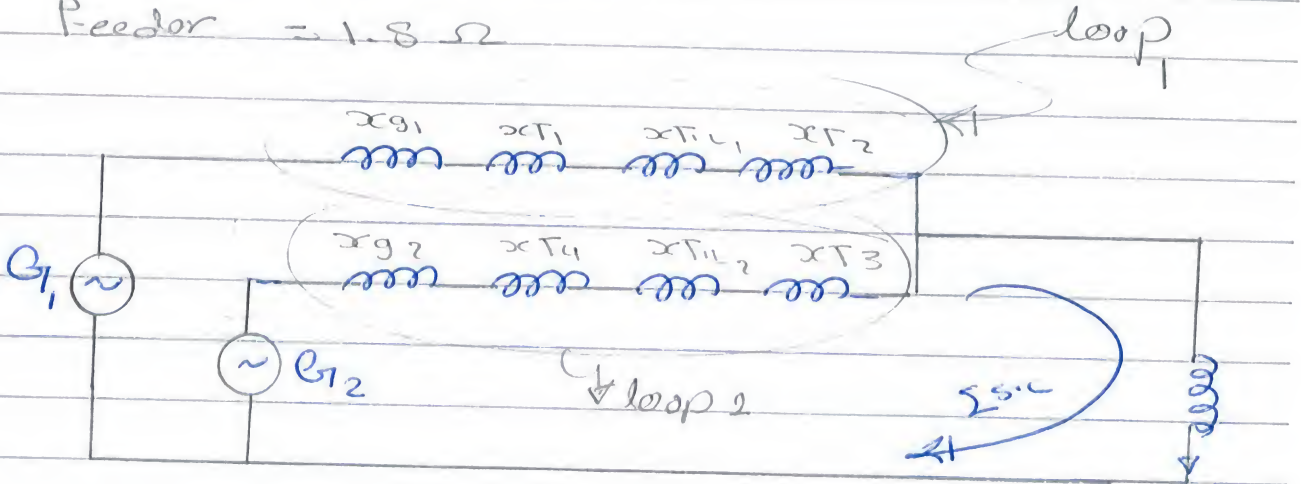 Feedor = 1.8 Ω
loop1
xg1 xT1 xT.L1 xT2
xg2 xT4 xT.L2 xT3
G1
G2
loop 2